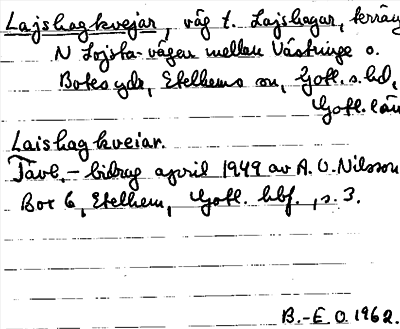 Lajshagkvejar, väg t. Lajshagar, terräng
N Lojsta-vägen mellan Västringe o.
Botes ydr, Etelhems sn, Gotl. s. hd,
Gotl. län
Laishagkveiar.
Tävl.- bidrag april 1949 av A. O. Nilsson
Box 6, Etelhem, Gotl. hbf., s. 3.
B.-E O. 1962.